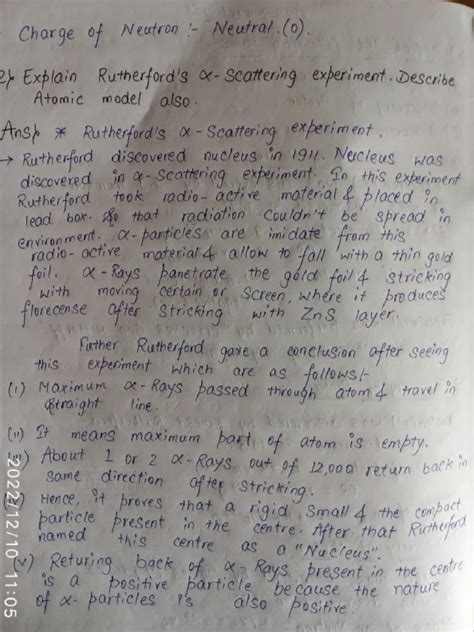 Charge of Neutron :- Neutral. (0).
2) Explain Rutherford's α-Scattering experiment. Describe
Atomic model also.
Ans) * Rutherford's α-Scattering experiment.
→ Rutherford discovered nucleus in 1911. Nucleus was
discovered in α-Scattering experiment. In this experiment
Rutherford took radio-active material & placed in
lead box. So that radiation Couldn't be spread in
environment. α-particles are imidate from this
radio-active material & allow to fall with a thin gold
foil. α-Rays panetrate the gold foil & stricking
with moving certain or Screen, where it produces
florecense after Stricking with ZnS layer.
Father Rutherford gave a conclusion after seeing
this experiment which are as follows:-
(i) Maximum α-Rays passed through atom & travel in
straight line.
(ii) It means maximum part of atom is empty.
About 1 or 2 α-Rays out of 12,000 return back in
same direction after Stricking.
Hence, it proves that a rigid small & the compact
particle present in the centre. After that Rutherford
named this centre as a "Nucleus".
(v) Returing back of α-Rays present in the centre
is a positive particle because the nature
of α-particles is also positive.
2022/12/10 11:05